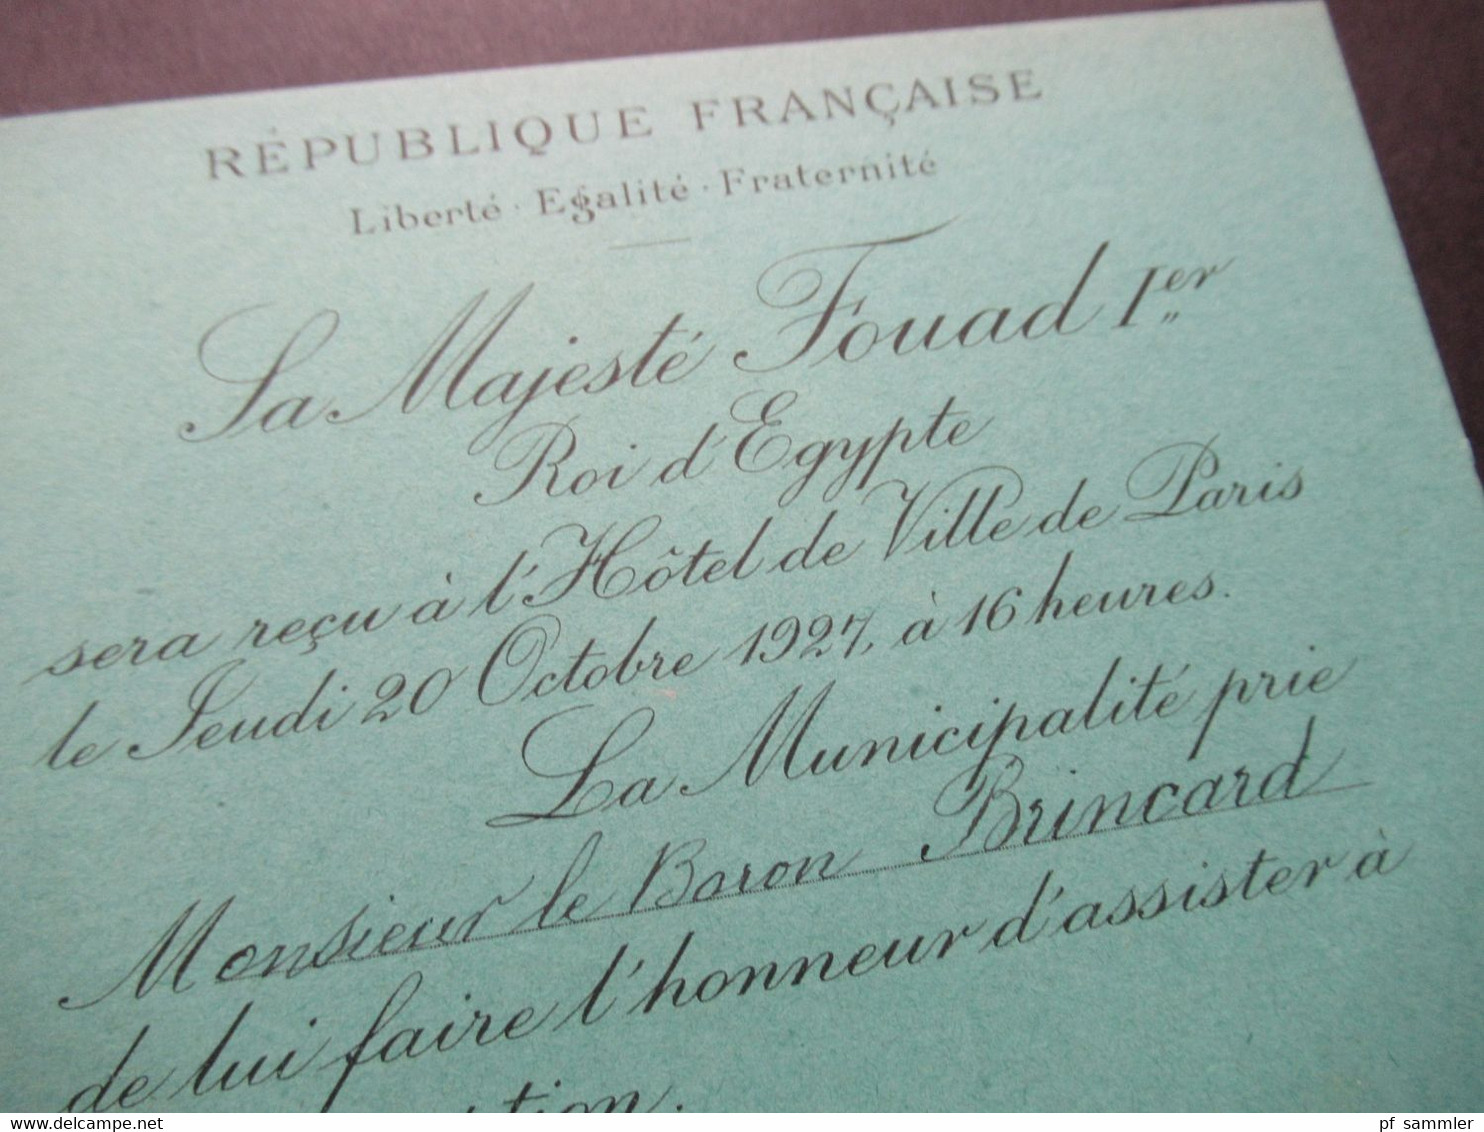 RÉPUBLIQUE FRANÇAISE
Liberté · Egalité · Fraternité
Sa Majesté Fouad Ier
Roi d'Egypte
sera reçu à l'Hôtel de Ville de Paris
le Jeudi 20 Octobre 1927, à 16 heures.
La Municipalité prie
Monsieur le Baron Brincard
de lui faire l'honneur d'assister à
pf sammler